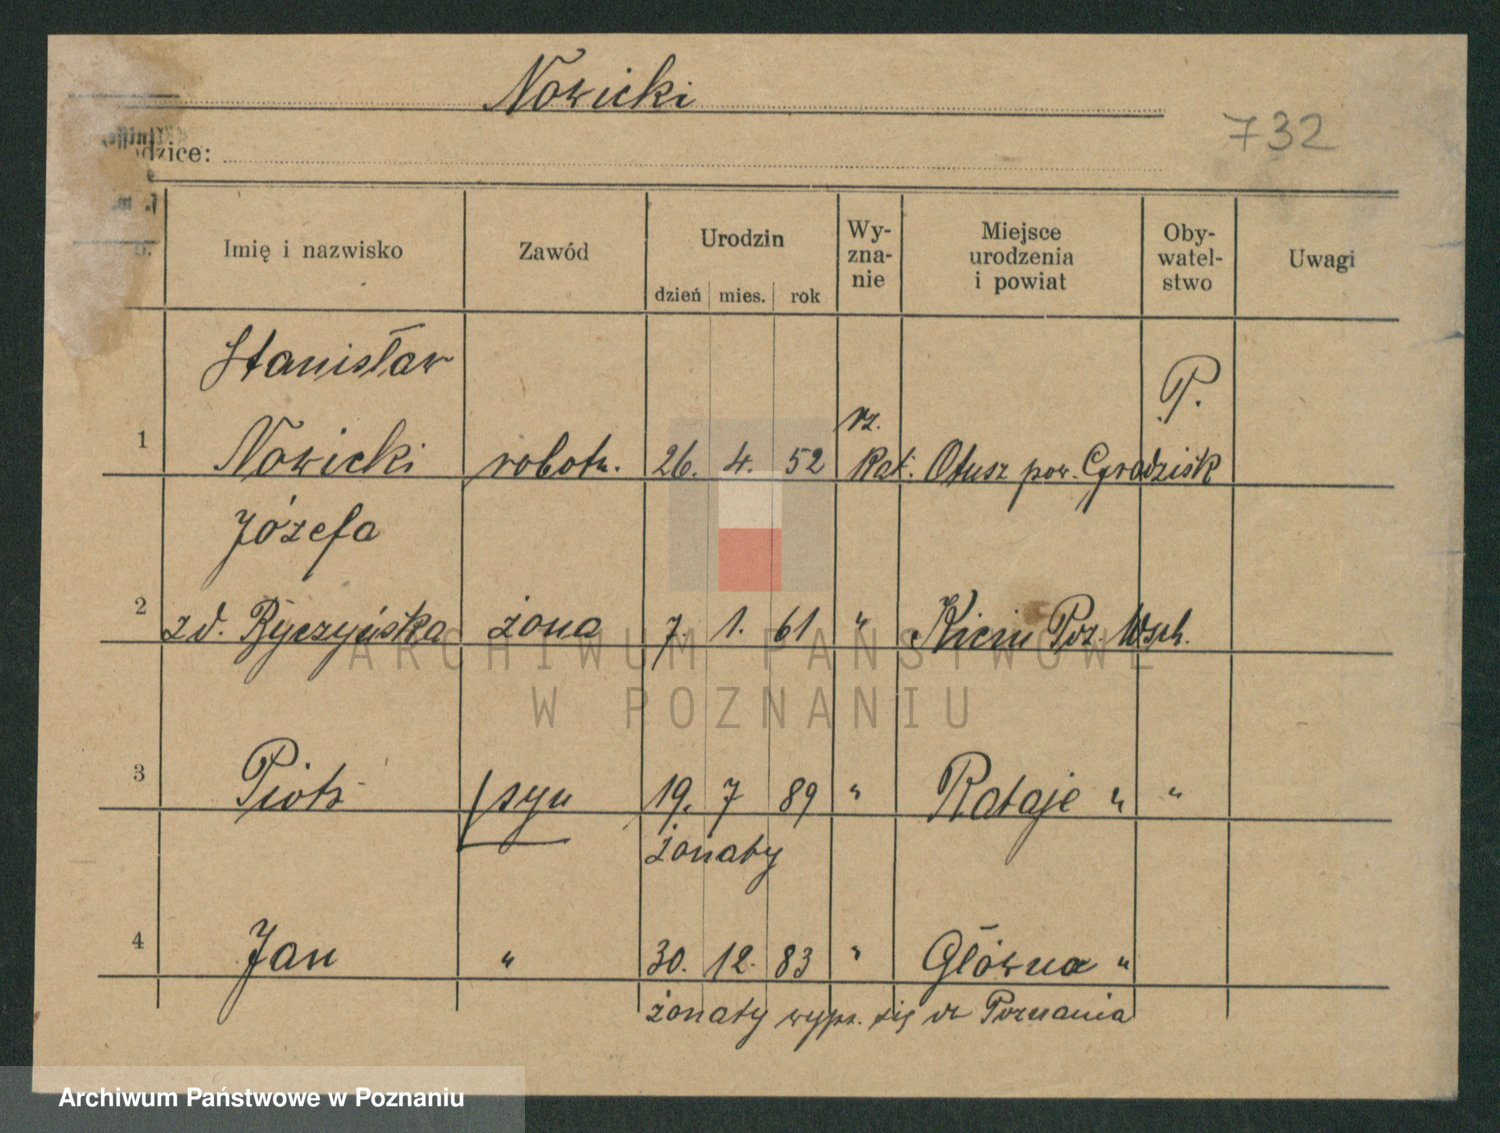 Nowicki
732
dzice:
Imię i nazwisko
Zawód
Urodzin
dzień mies. rok
Wy-
zna-
nie
Miejsce
urodzenia
i powiat
Oby-
watel-
stwo
Uwagi
Stanisław
P.
rz.
1 Nowicki robotn. 26. 4. 52 kat. Otusz pow. Grodzisk
Józefa
2 z d. Byczyńska żona 7. 1. 61 " Kicin Poz. Wsch.
3 Piotr syn 19. 7 89 " Rataje " "
żonaty
4 Jan " 30. 12. 83 " Główna "
żonaty wypr. się do Poznania
ARCHIWUM PAŃSTWOWE
W POZNANIU
Archiwum Państwowe w Poznaniu